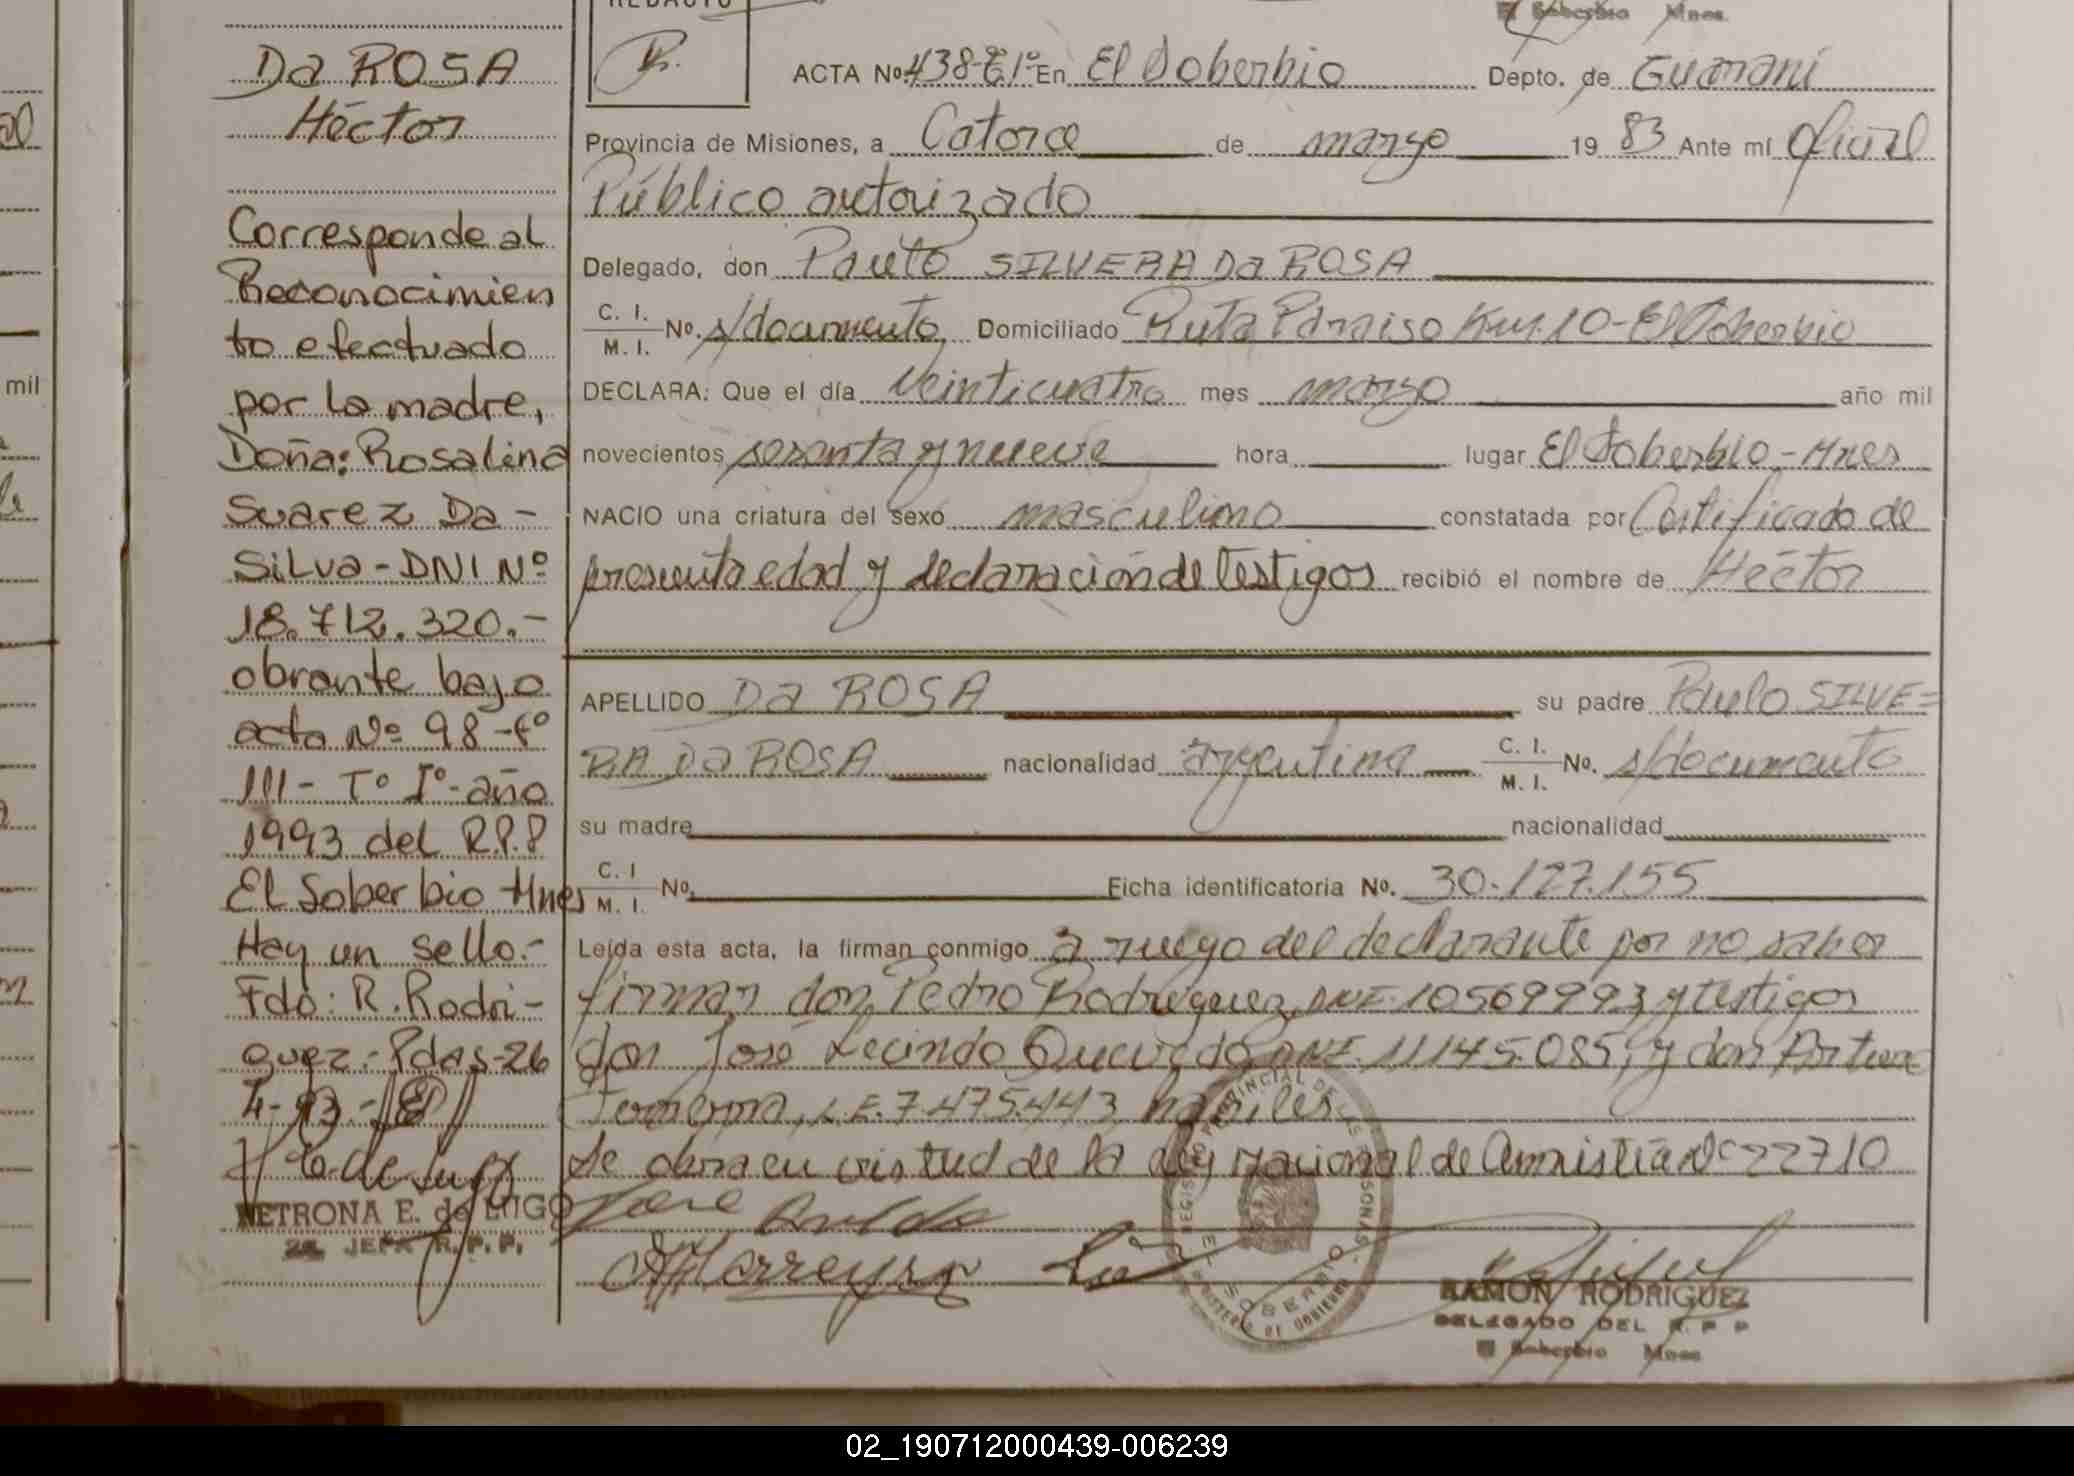 REDACTO
Soberbio Mnes.
Da ROSA
Héctor
Corresponde al
Reconocimien
to efectuado
por la madre,
Doña: Rosalina
Suarez Da -
Silva - DNI Nº
18.712.320.-
obrante bajo
acta Nº 98 - fº
111 - Tº Iº - año
1993 del R.P.P
El Soberbio Mnes
Hay un sello.-
Fdo: R. Rodri -
guez - Pdas - 26
4 - 93 -
PETRONA E. de LUGO
JEFA R. P. P.
ACTA No. 438-Tº1º En El Soberbio Depto. de Guaraní
Provincia de Misiones, a Catorce de marzo 19 83 Ante mí Oficial
Público autorizado
Delegado, don Paulo SILVERA Da ROSA
C. I. M. I. No. s/documento Domiciliado Ruta Paraiso Km. 10 - El Soberbio
DECLARA: Que el día veinticuatro mes marzo año mil
novecientos sesenta y nueve hora lugar El Soberbio - Mnes
NACIO una criatura del sexo masculino constatada por Certificado de
presunta edad y declaración de testigos recibió el nombre de Héctor
APELLIDO Da ROSA su padre Paulo SILVE=
RA Da ROSA nacionalidad argentina C. I. M. I. No. s/documento
su madre nacionalidad
C. I M. I. No. Ficha identificatoria No. 30.127.155
Leída esta acta, la firman conmigo a ruego del declarante por no saber
firmar don Pedro Rodriguez DNI. 10569993 y testigos
don José Lecindo Quevedo DNI. 11145.085, y don Artur
Ferreyra, L.E. 7.475.443 hábiles
Se obra en virtud de la ley nacional de Amnistía Nº 22710
REGISTRO PROVINCIAL DE LAS PERSONAS
EL SOBERBIO
MINISTERIO DE GOBIERNO
RAMON RODRIGUEZ
DELEGADO DEL R. P. P
El Soberbio Mnes
mil
02_190712000439-006239